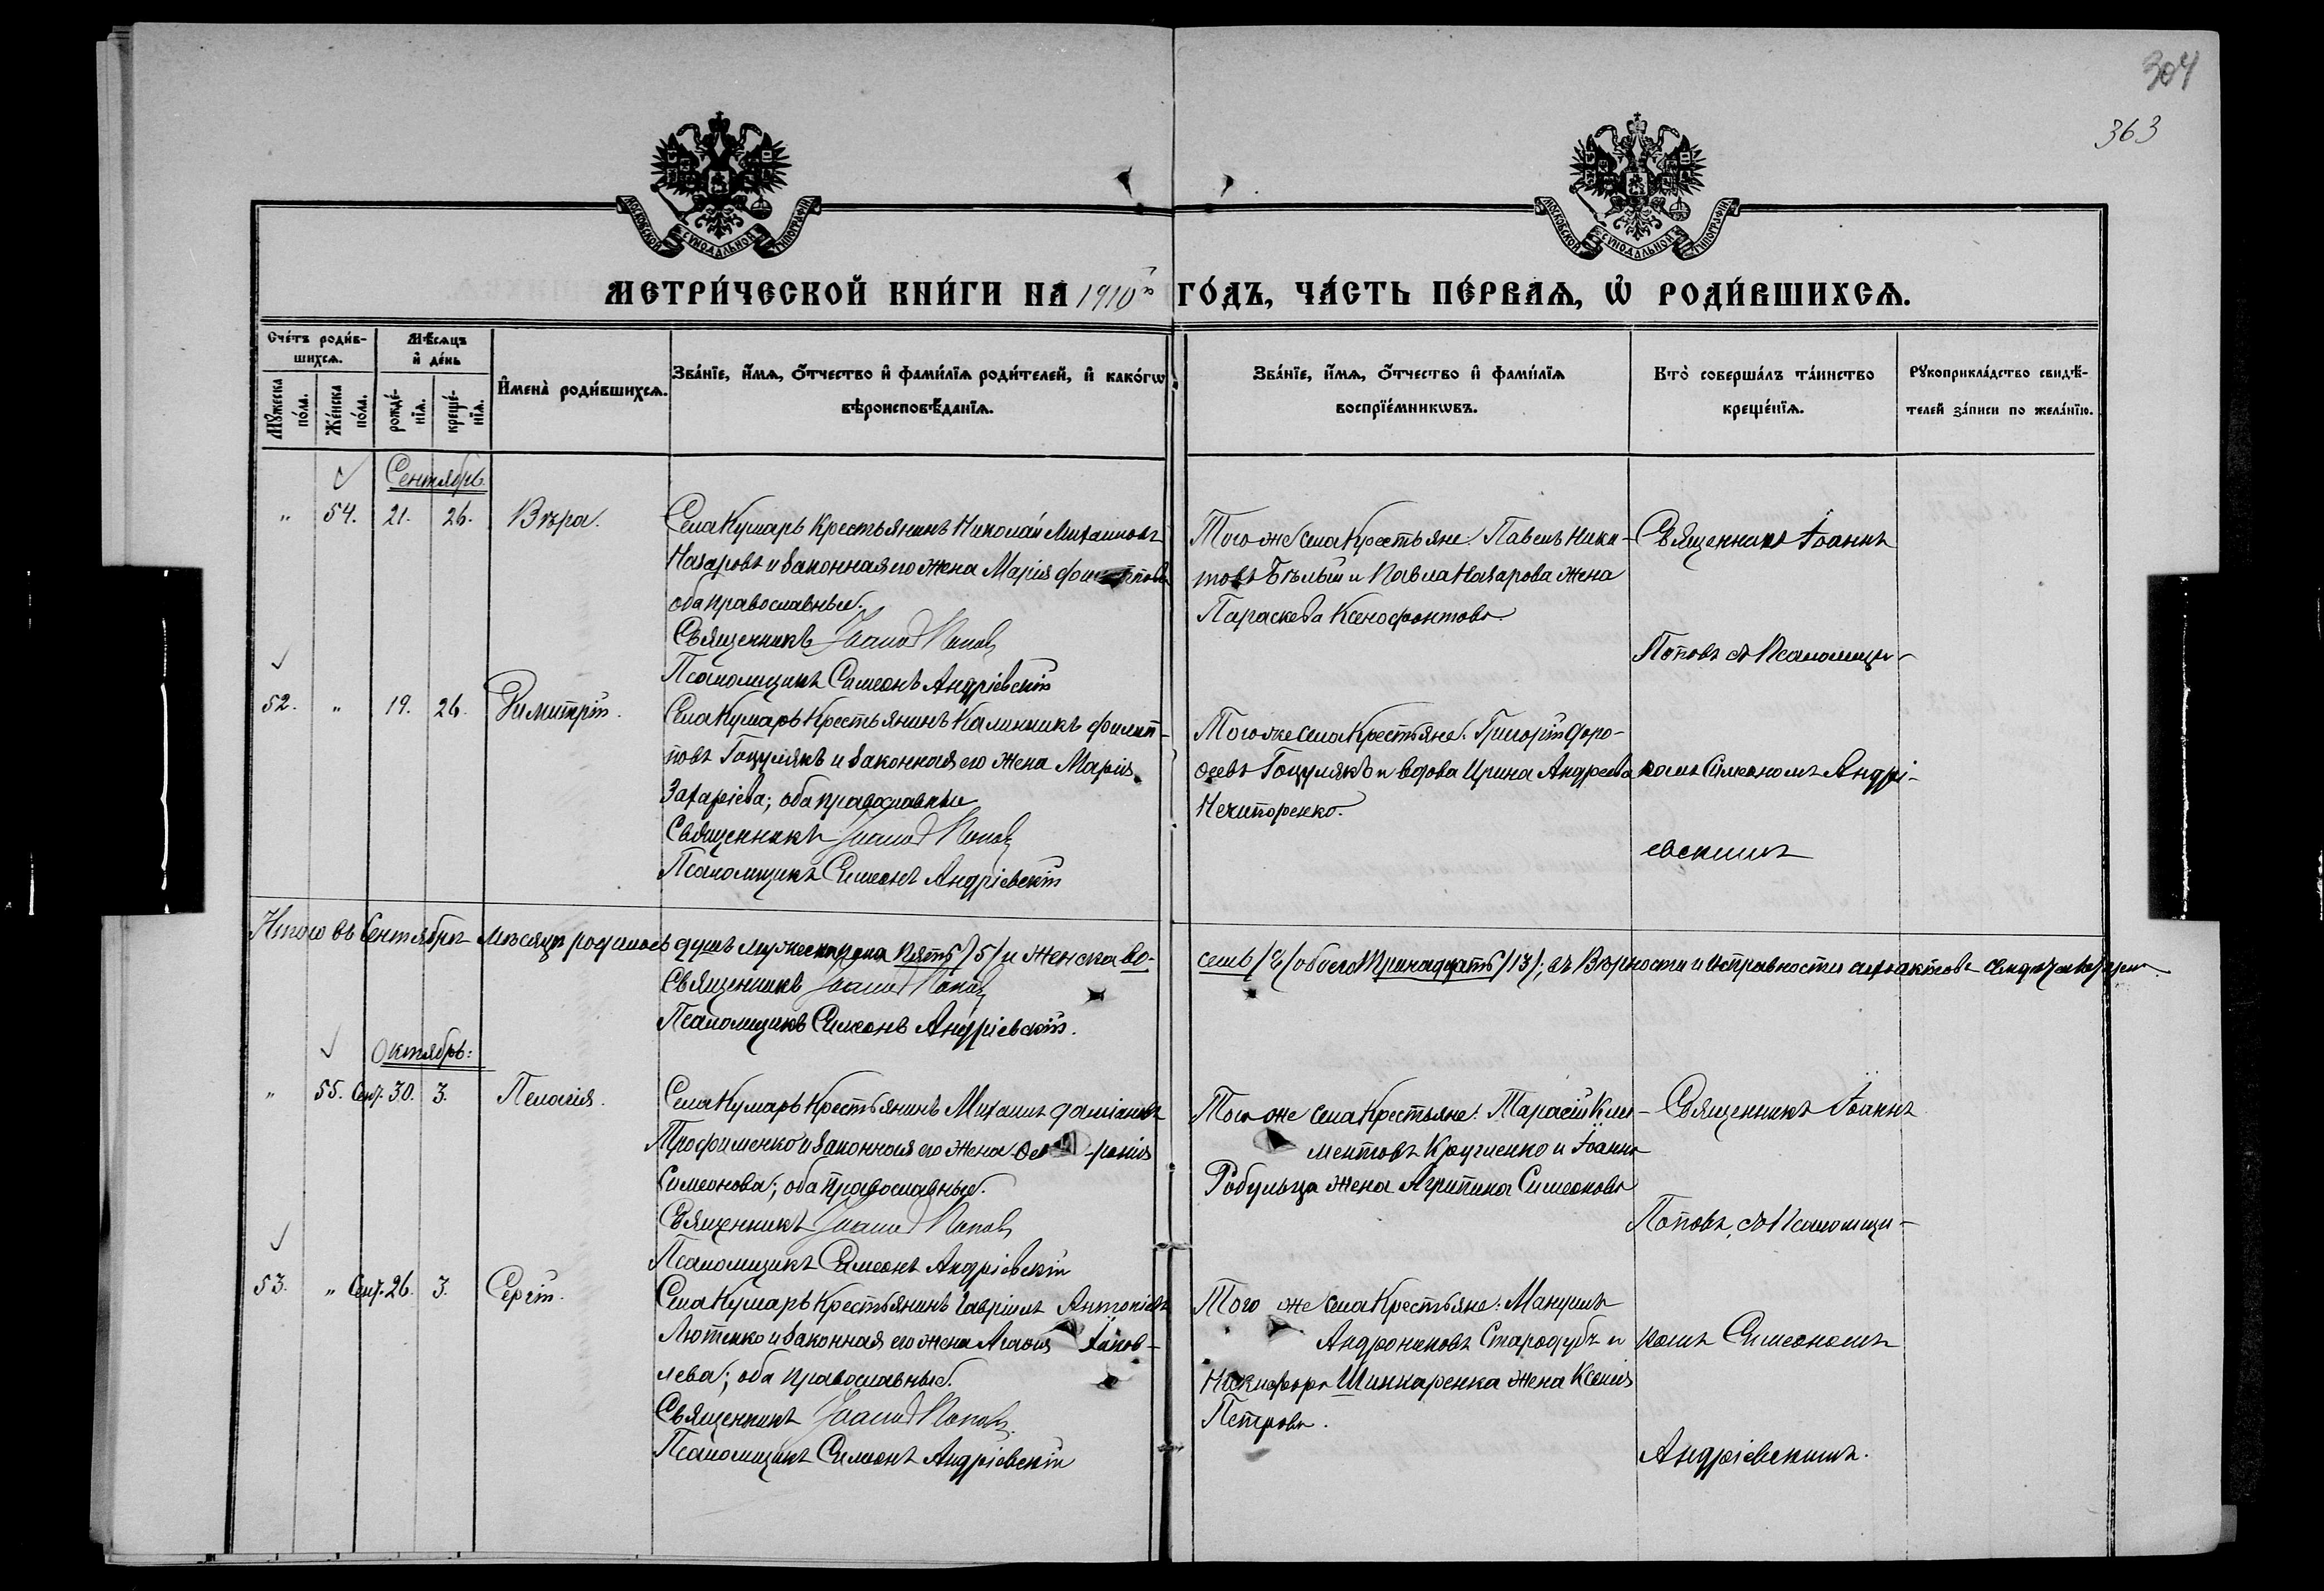 304
363
МОСКОВСКОЙ СѴНОДАЛЬНОЙ ТИПОГРАФІИ
МОСКОВСКОЙ СѴНОДАЛЬНОЙ ТИПОГРАФІИ
МЕТРИ́ЧЕСКОЙ КНИ́ГИ НА 1910й ГО́ДЪ, ЧА́СТЬ ПЕ́РВАѦ, Ѡ҆ РОДИ́ВШИХСѦ.
Сче́тъ роди́в-
шихсѧ.
Мꙋжеска по́ла.
Же́нска по́ла.
Мѣ́сѧцъ
и҆ де́нь
рожде́-
нїѧ.
креще́-
нїѧ.
И҆мена̀ роди́вшихсѧ.
Зва́нїе, и҆́мѧ, ѻ҆́тчество и҆ фами́лїѧ роди́телей, и҆ како́гѡ
вѣроисповѣ́данїѧ.
Зва́нїе, и҆́мѧ, ѻ҆́тчество и҆ фами́лїѧ
воспрїе́мникѡвъ.
Кто̀ соверша́лъ та́инство
креще́нїѧ.
Рꙋкоприкла́дство свидѣ́-
телей за́писи по жела́нїю.
Сентябрь
" 54. 21. 26. Вѣра.
Села Кушмарь крестьянинъ Николай Михаиловъ
Назаровъ и законная его жена Марія
оба православные.
Священникъ Іоаннъ Поповъ
Псаломщикъ Симеонъ Андріевскій
Того же села крестьяне: Павелъ Ники-
товъ Бѣлый и Павла Назарова жена
Параскева Ксенофонтова.
Священникъ Іоаннъ
Поповъ съ Псаломщи-
52. " 19. 26. Димитрій.
Села Кушмарь крестьянинъ Калинникъ Филип-
повъ Гоцулякъ и законная его жена Марія
Захаріева; оба православные
Священникъ Іоаннъ Поповъ
Псаломщикъ Симеонъ Андріевскій
Того же села крестьяне: Григорій Доро-
феевъ Гоцулякъ и вдова Ирина Андреева
Нечипоренко.
комъ Симеономъ Андрі-
евскимъ
Итого въ Сентябрѣ мѣсяцѣ родилось душъ мужеска пола пять /5/ и женска во-
семь /8/ обоего тринадцать /13/; въ вѣрности и исправности
Священникъ Іоаннъ Поповъ
Псаломщикъ Симеонъ Андріевскій.
Октябрь:
" 55. Сент. 30. 3. Пелагія.
Села Кушмарь крестьянинъ Михаилъ Даміановъ
Трофименко и законная его жена
Симеонова; оба православные.
Священникъ Іоаннъ Поповъ
Псаломщикъ Симеонъ Андріевскій
Того же села крестьяне: Тарасій Кли-
ментовъ Кругленко и Іоанна
Робульца жена Агрипина Симеонова
Священникъ Іоаннъ
Поповъ, съ Псаломщи-
53. " Сент. 26. 3. Сергій.
Села Кушмарь крестьянинъ Гавріилъ Антоніевъ
Лютенко и законная его жена Агафія Іаков-
лева; оба православные.
Священникъ Іоаннъ Поповъ
Псаломщикъ Симеонъ Андріевскій
Того же села крестьяне: Мануилъ
Андрониковъ Стародубъ и
Никифора Шинкаренка жена Ксенія
Петрова.
комъ Симеономъ
Андріевскимъ.